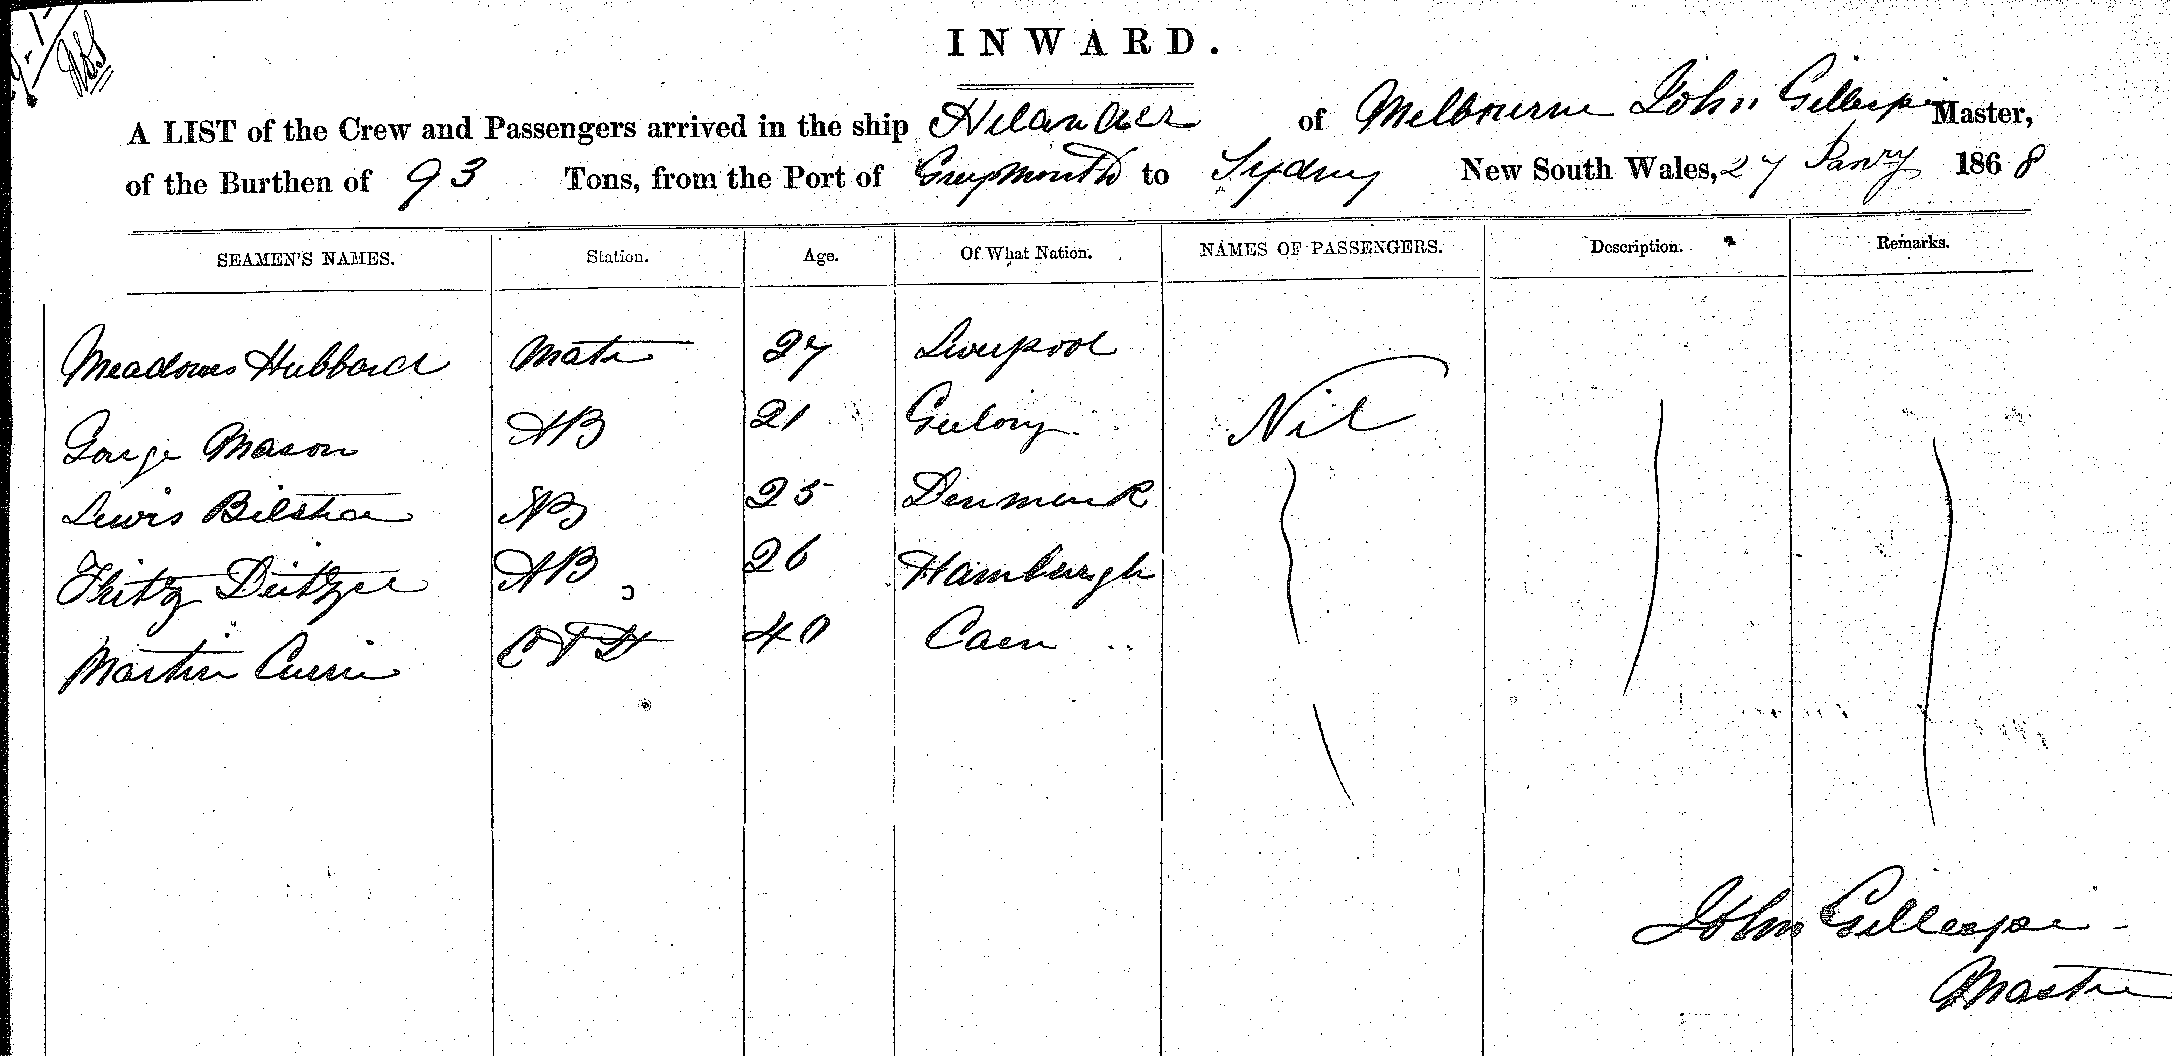 INWARD.
A LIST of the Crew and Passengers arrived in the ship of Melbourne John Gillespie Master,
of the Burthen of 93 Tons, from the Port of Greymouth to Sydney New South Wales, 27 Janry 1868
SEAMEN'S NAMES. Station. Age. Of What Nation. NAMES OF PASSENGERS. Description. Remarks.
Meadows Hubbard Mate 27 Liverpool
George Mason AB 21 Geelong Nil
Lewis AB 25 Denmark
Fritz AB 26 Hamburgh
Martin Currie 40 Caen
John Gillespie
Master